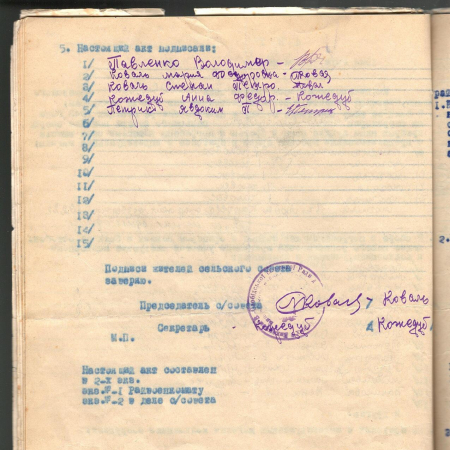 5. Настоящий акт подписали:
1/ Павленко Володимер -
2/ Коваль Мария Федоровна - Коваль
3/ Коваль Степан Петро. Коваль
4/ Кожедуб Анна Федор. - Кожедуб
5/ Петрик Явдоким П -
6/
7/
8/
9/
10/
11/
12/
13/
14/
15/
Подписи жителей сельского совета
заверяю.
Председатель с/совета Коваль / Коваль
Секретарь Кожедуб / Кожедуб.
М.П.
Настоящий акт составлен
в 2-х экз.
экз.№-1 Райвоенкомату
экз.№-2 в деле с/совета